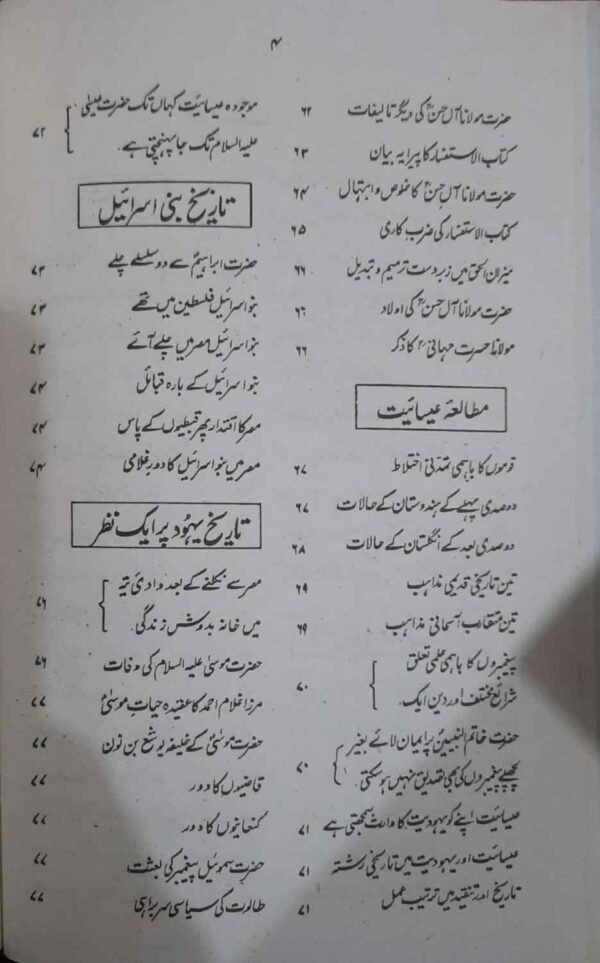 ۴
حضرت مولانا آل حسنؒ کی دیگر تالیفات ۶۲
کتاب الاستفسار کا پیرایہ بیان ۶۳
حضرت مولانا آل حسنؒ کا خلوص و ابتہال ۶۴
کتاب الاستفسار کی ضرب کاری ۶۵
میزان الحق میں زبردست ترمیم و تبدیل ۶۶
حضرت مولانا آل حسنؒ کی اولاد ۶۶
مولانا حسرت موہانیؒ کا ذکر ۶۶
مطالعۂ عیسائیت
قوموں کا باہمی تمدنی اختلاط ۶۷
دو صدی پہلے کے ہندوستان کے حالات ۶۷
دو صدی بعد کے انگلستان کے حالات ۶۸
تین تاریخی قدیمی مذاہب ۶۹
تین متقارب آسمانی مذاہب ۶۹
پیغمبروں کا باہمی علمی تعلق
شرائع مختلف اور دین ایک۔ ۷۰
حضرت خاتم النبیینؐ پر ایمان لائے بغیر
پچھلے پیغمبروں کی بھی تصدیق نہیں ہو سکتی۔ ۷۰
عیسائیت اپنے کو یہودیت کا وارث سمجھتی ہے ۷۱
عیسائیت اور یہودیت میں تاریخی رشتہ ۷۱
تاریخ اور تنقید میں ترتیب عمل ۷۱
موجودہ عیسائیت کہاں تک حضرت عیسیٰ
علیہ السلام تک جا پہنچتی ہے۔ ۷۲
تاریخ بنی اسرائیل
حضرت ابراہیمؑ سے دو سلسلے چلے ۷۳
بنو اسرائیل فلسطین میں تھے ۷۳
بنو اسرائیل مصر میں چلے آئے ۷۳
بنو اسرائیل کے بارہ قبائل ۷۴
مصر کا اقتدار پھر قبطیوں کے پاس ۷۴
مصر میں بنو اسرائیل کا دورِ غلامی ۷۴
تاریخ یہود پر ایک نظر
مصر سے نکلنے کے بعد وادیٔ تیہ
میں خانہ بدوش زندگی۔ ۷۶
حضرت موسیٰ علیہ السلام کی وفات ۷۶
مرزا غلام احمد کا عقیدہ حیاتِ موسیٰؑ ۷۷
حضرت موسیٰؑ کے خلیفہ یوشع بن نون ۷۷
قاضیوں کا دور ۷۷
کنعانیوں کا دور ۷۷
حضرت سموئیل پیغمبر کی بعثت ۷۷
طالوت کی سیاسی سربراہی ۷۷